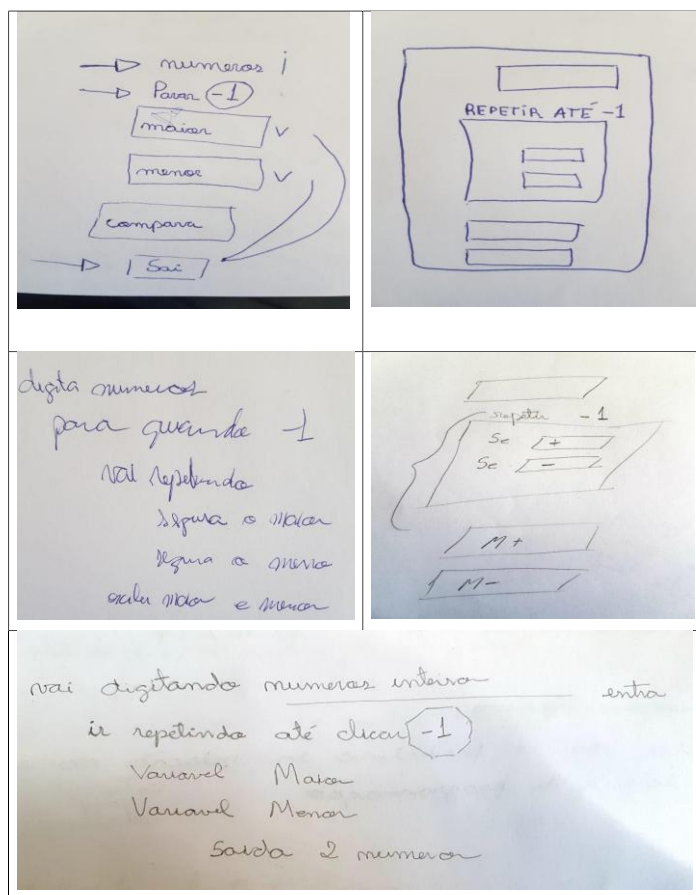 numeros i
Parar -1
maior
menor
compara
Sai
REPETIR ATÉ -1
digita numeros
para quando -1
vai repetindo
segura o maior
segura o menor
exibir maior e menor
repetir -1
Se +
Se -
M+
M-
vai digitando numeros inteiro entra
ir repetindo até clicar -1
Variavel Maior
Variavel Menor
Saida 2 numeros